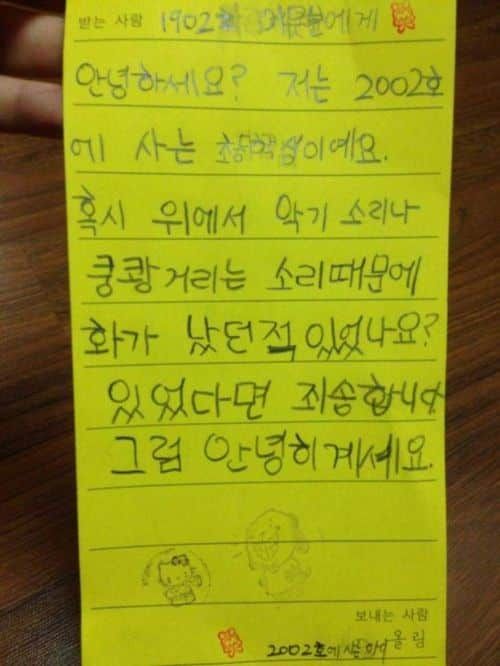 받는 사람 1902호 에게
안녕하세요? 저는 2002호
에 사는 초등학생이예요.
혹시 위에서 악기 소리나
쿵쾅거리는 소리때문에
화가 났던적 있었나요?
있었다면 죄송합니다
그럼 안녕히계세요.
보내는 사람
2002호에 사는 올림